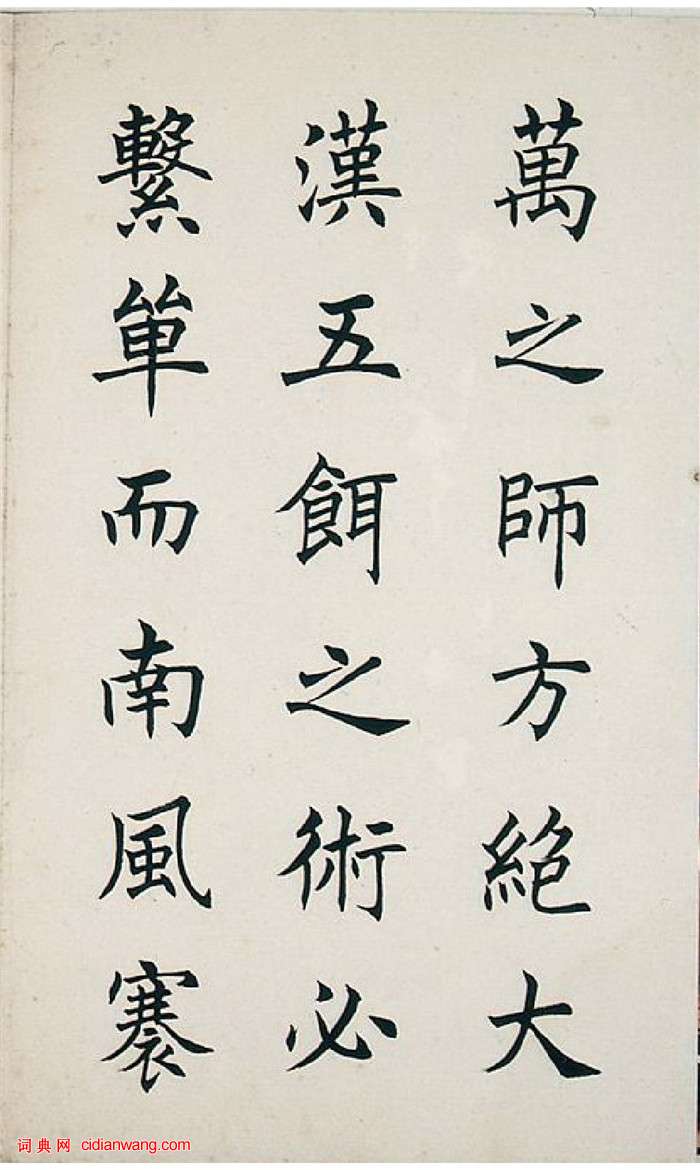 萬之師方絕大
漢五餌之術必
繫單而南風褰
词典网 cidianwang.com